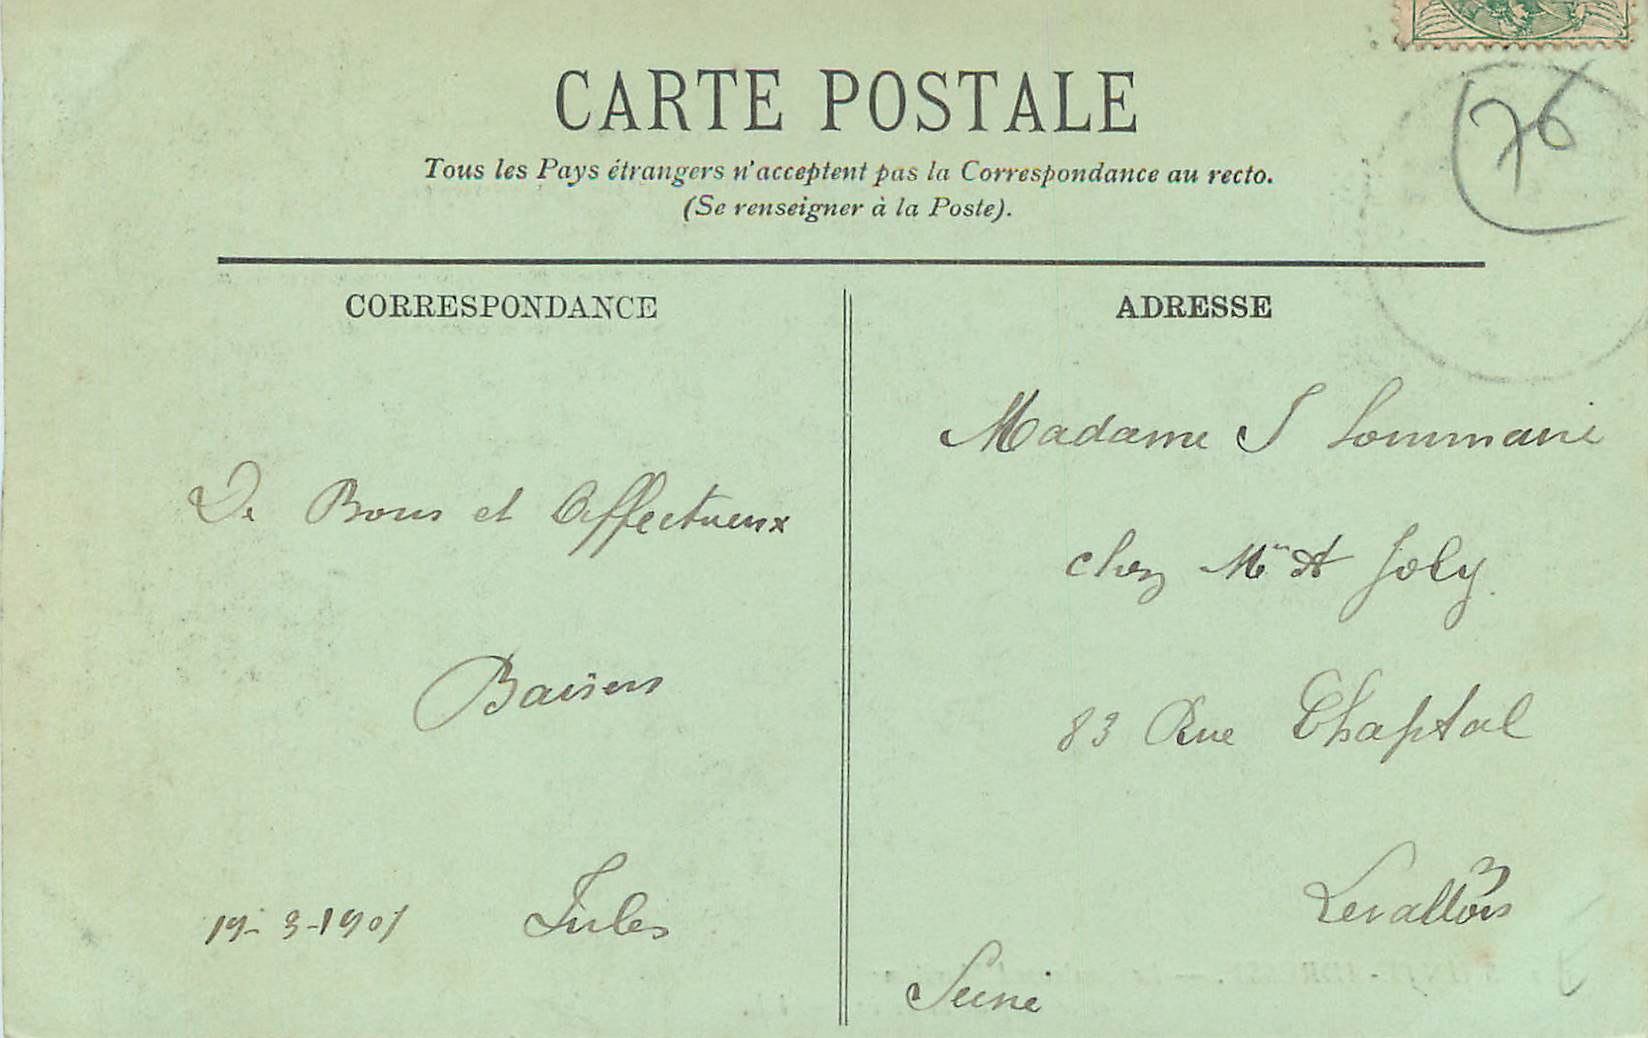 CARTE POSTALE
Tous les Pays étrangers n'acceptent pas la Correspondance au recto.
(Se renseigner à la Poste).
76
CORRESPONDANCE
De Bons et Affectueux
Baisers
19-3-1907 Jules
ADRESSE
Madame J Lommaire
chez Mme A Joly
83 Rue Chaptal
Levallois
Seine